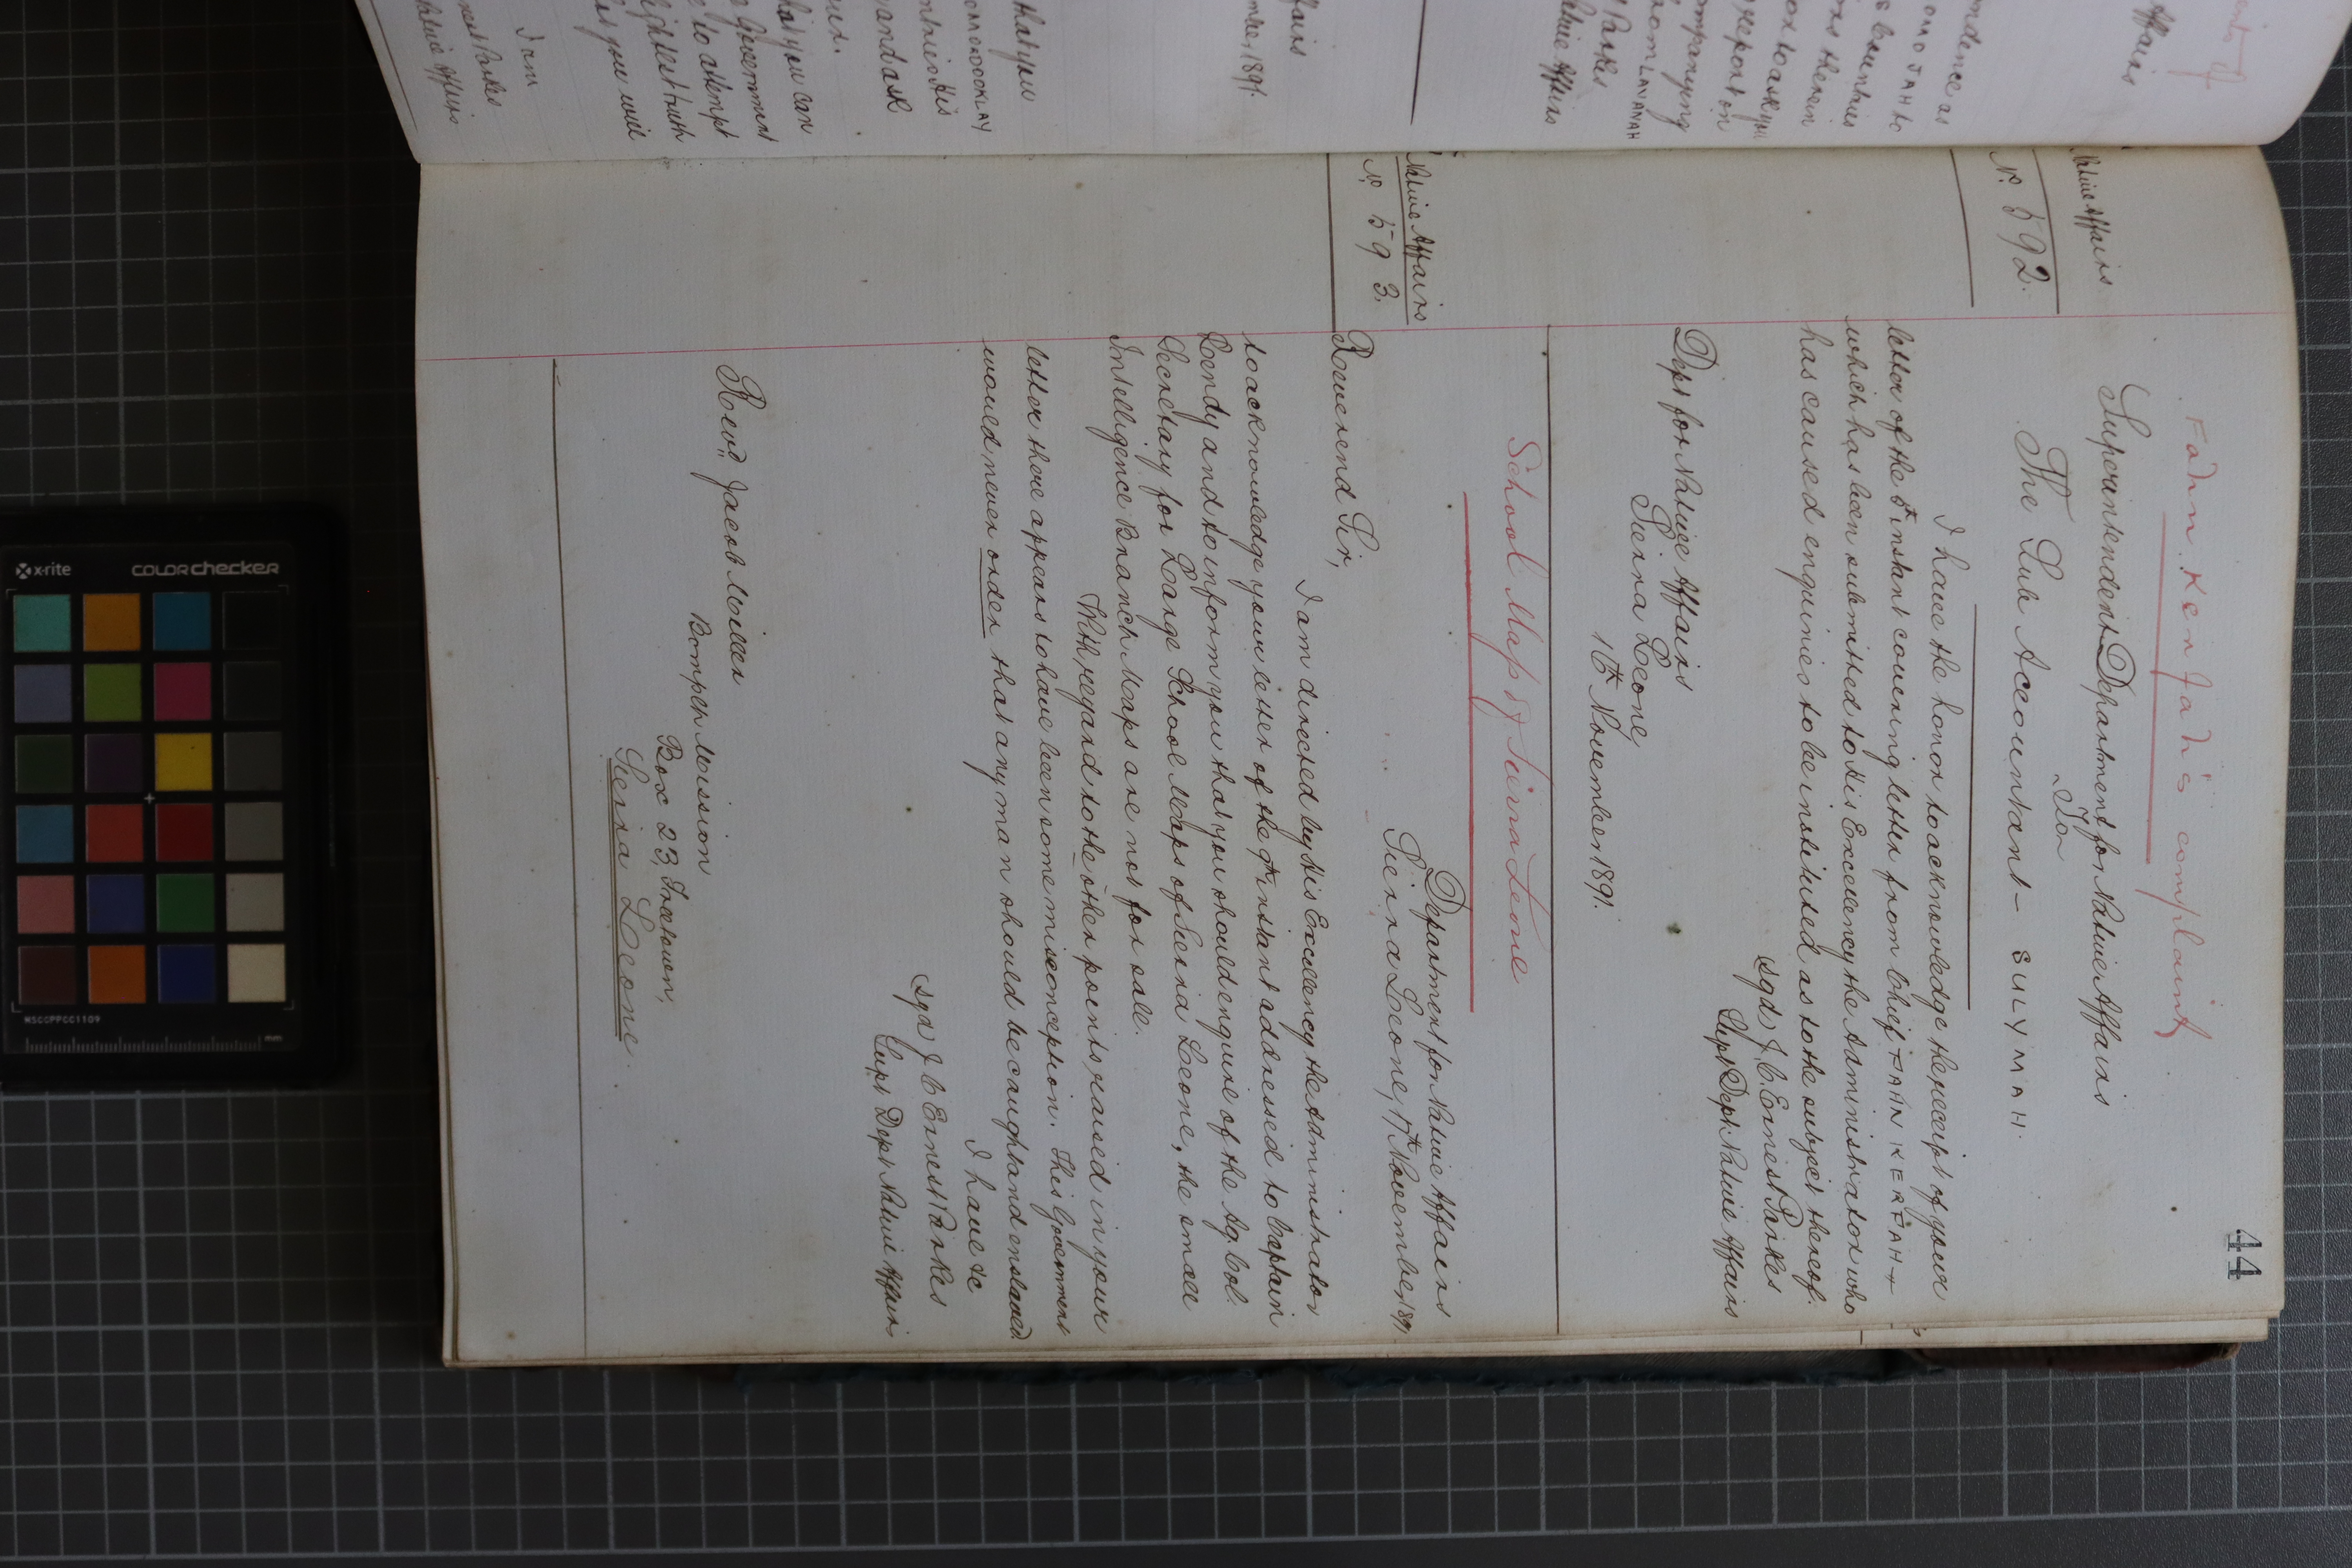 44
Fahn Kerfah's complaint
Native Affairs
No. 592.
Superintendent Department for Native Affairs
To
The Sub Accountant - SULYMAH.
I have the honor to acknowledge the receipt of your
letter of the 5th instant covering letter from Chief FAHN KERFAH
which has been submitted to His Excellency the Administrator who
has caused enquiries to be instituted as to the subject thereof.
sgd J. C. Ernest Parkes
Supt Dept Native Affairs
Dept for Native Affairs
Sierra Leone
16th November 1891.
School Map of Sierra Leone
Native Affairs
No. 593.
Department for Native Affairs
Sierra Leone, 17th November 1891
Reverend Sir,
I am directed by His Excellency the Administrator
to acknowledge your letter of the 9th instant addressed to Captain
Lendy and to inform you that you should enquire of the Ag. Col.
Secretary for Large School Maps of Sierra Leone, the small
Intelligence Branch Maps are not for sale.
With regard to the other points raised in your
letter there appears to have been some misconception. This Government
would never order that any man should be caught and enslaved.
I have &c
sgd J C Ernest Parkes
Supt Dept Native Affairs
Revd. Jacob Miller
Bompeh Mission
Box 23, Freetown,
Sierra Leone.
Affairs
ndence as
OMO JAH to
therein
or to ask you
report on
mpanying
from LAVANAH
Parkes
ative Affairs
ffairs
mber 1891.
that you
OMOROOKLAY
and ask
hat you can
Government
to attempt
lightest truth
as you will
I am
nest Parkes
ative Affairs
x-rite
COLORchecker
MSCCPPCC1109
mm